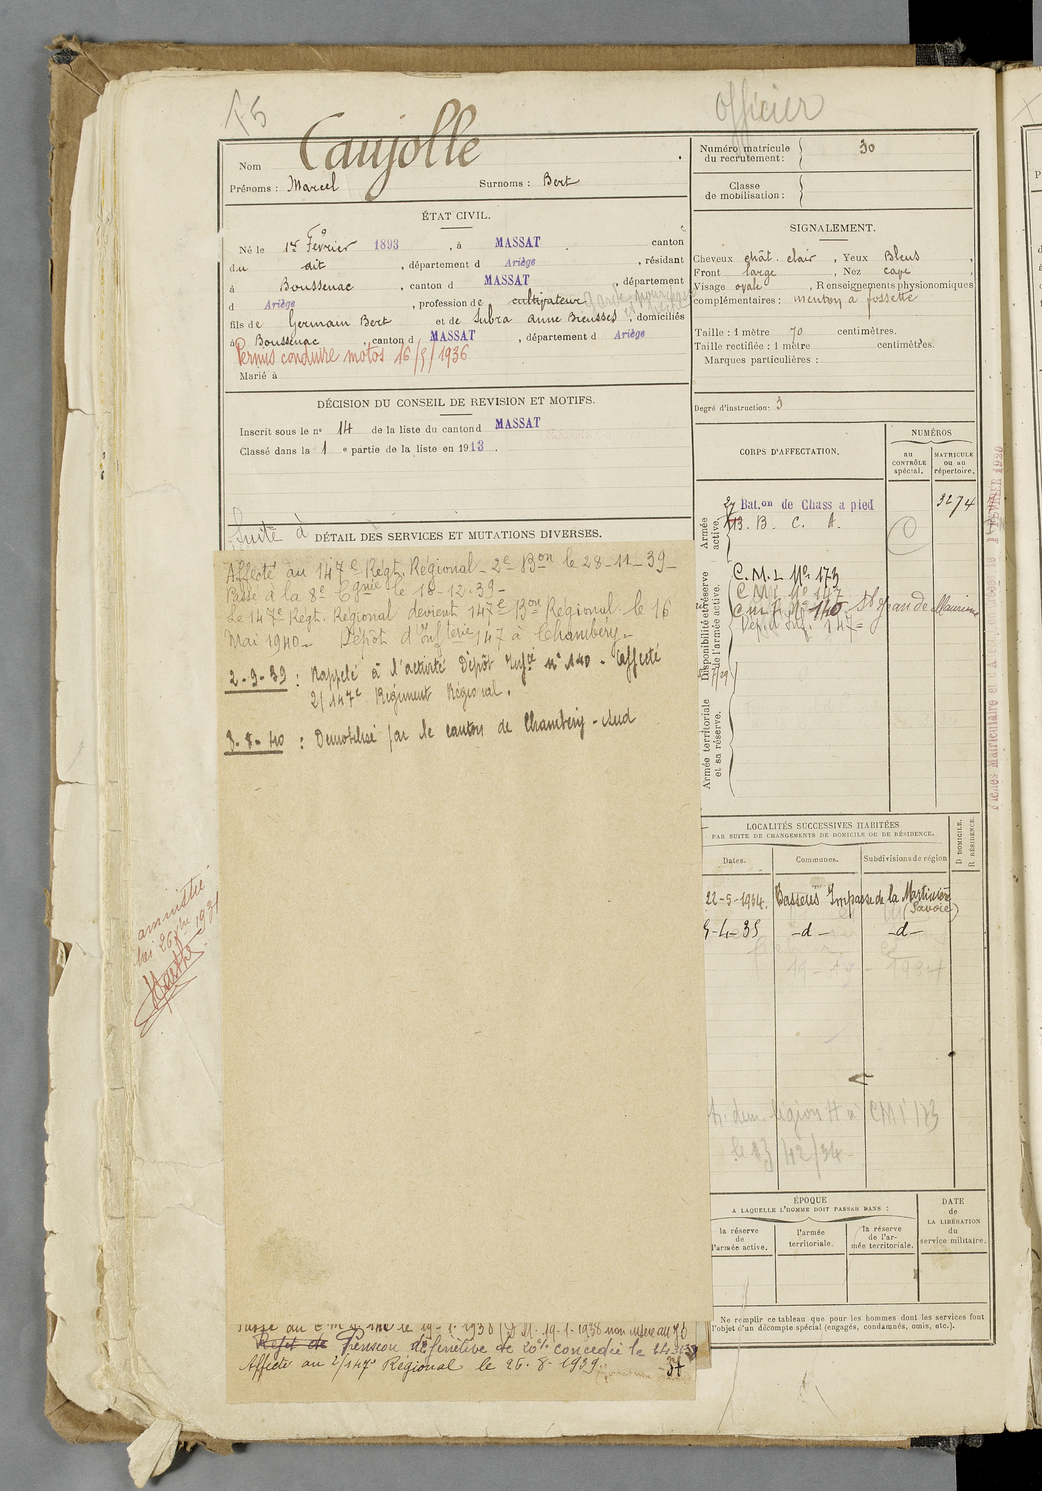 officier
Nom Caujolle
Prénoms : Marcel Surnoms : Bert
ÉTAT CIVIL.
Né le 1er Février 1893, à MASSAT canton
du dit, département d Ariège, résidant
à Boussenac, canton d MASSAT, département
d Ariège, profession de cultivateur
fils de Germain Bert et de Subra Anne domiciliés
à Boussenac, canton d MASSAT, département d Ariège
Permis conduire motos 16/5/1936
Marié à
DÉCISION DU CONSEIL DE REVISION ET MOTIFS.
Inscrit sous le n° 14 de la liste du canton d MASSAT
Classé dans la 1 e partie de la liste en 1913.
Suite à DÉTAIL DES SERVICES ET MUTATIONS DIVERSES.
Affecté au 147e Régt. Régional - 2e Bon le 28-11-39-
Passé à la 8e Cgnie le 18-12-39-
Le 147e Régt. Régional devient 147e Bon Régional le 16
Mai 1940- Dépôt d'Infterie 147 à Chambéry-
2-9-39 : Rappelé à l'activité Dépôt Infie n° 140 - Affecté
2/147e Régiment Régional.
8-8-40 : Démobilisé par le canton de Chambéry-Sud
Passé au le 19-1-1938 (D.M. 19-1-1938
Pension définitive de 20% concédée le
Affecté au 2/147e Régional le 26-8-1939.
37
amnistié
Numéro matricule
du recrutement : 30
Classe
de mobilisation :
SIGNALEMENT.
Cheveux chât. clair, Yeux Bleus,
Front large, Nez cave,
Visage ovale, Renseignements physionomiques
complémentaires : menton à fossette
Taille : 1 mètre 70 centimètres.
Taille rectifiée : 1 mètre centimètres.
Marques particulières :
Degré d'instruction : 3
CORPS D'AFFECTATION.
NUMÉROS
au
CONTRÔLE
spécial.
MATRICULE
ou au
répertoire.
Armée
active.
27 Bat.on de Chass a pied 3274
13. B. C. A.
Disponibilité et réserve
de l'armée active.
C. M. I. No. 173
C M I No 147
C M I No 140 St Jean de Maurienne
Armée territoriale
et sa réserve.
LOCALITÉS SUCCESSIVES HABITÉES
PAR SUITE DE CHANGEMENTS DE DOMICILE OU DE RÉSIDENCE.
D DOMICILE.
R RÉSIDENCE.
Dates. Communes. Subdivisions de région
22-5-1934. Bassens Impasse de la Martinière
(Savoie)
5-4-35 -d- -d-
ÉPOQUE
A LAQUELLE L'HOMME DOIT PASSER DANS :
la réserve
de
l'armée active.
l'armée
territoriale.
la réserve
de l'ar-
mée territoriale.
DATE
de
LA LIBÉRATION
du
service militaire.
Ne remplir ce tableau que pour les hommes dont les services font
l'objet d'un décompte spécial (engagés, condamnés, omis, etc.).